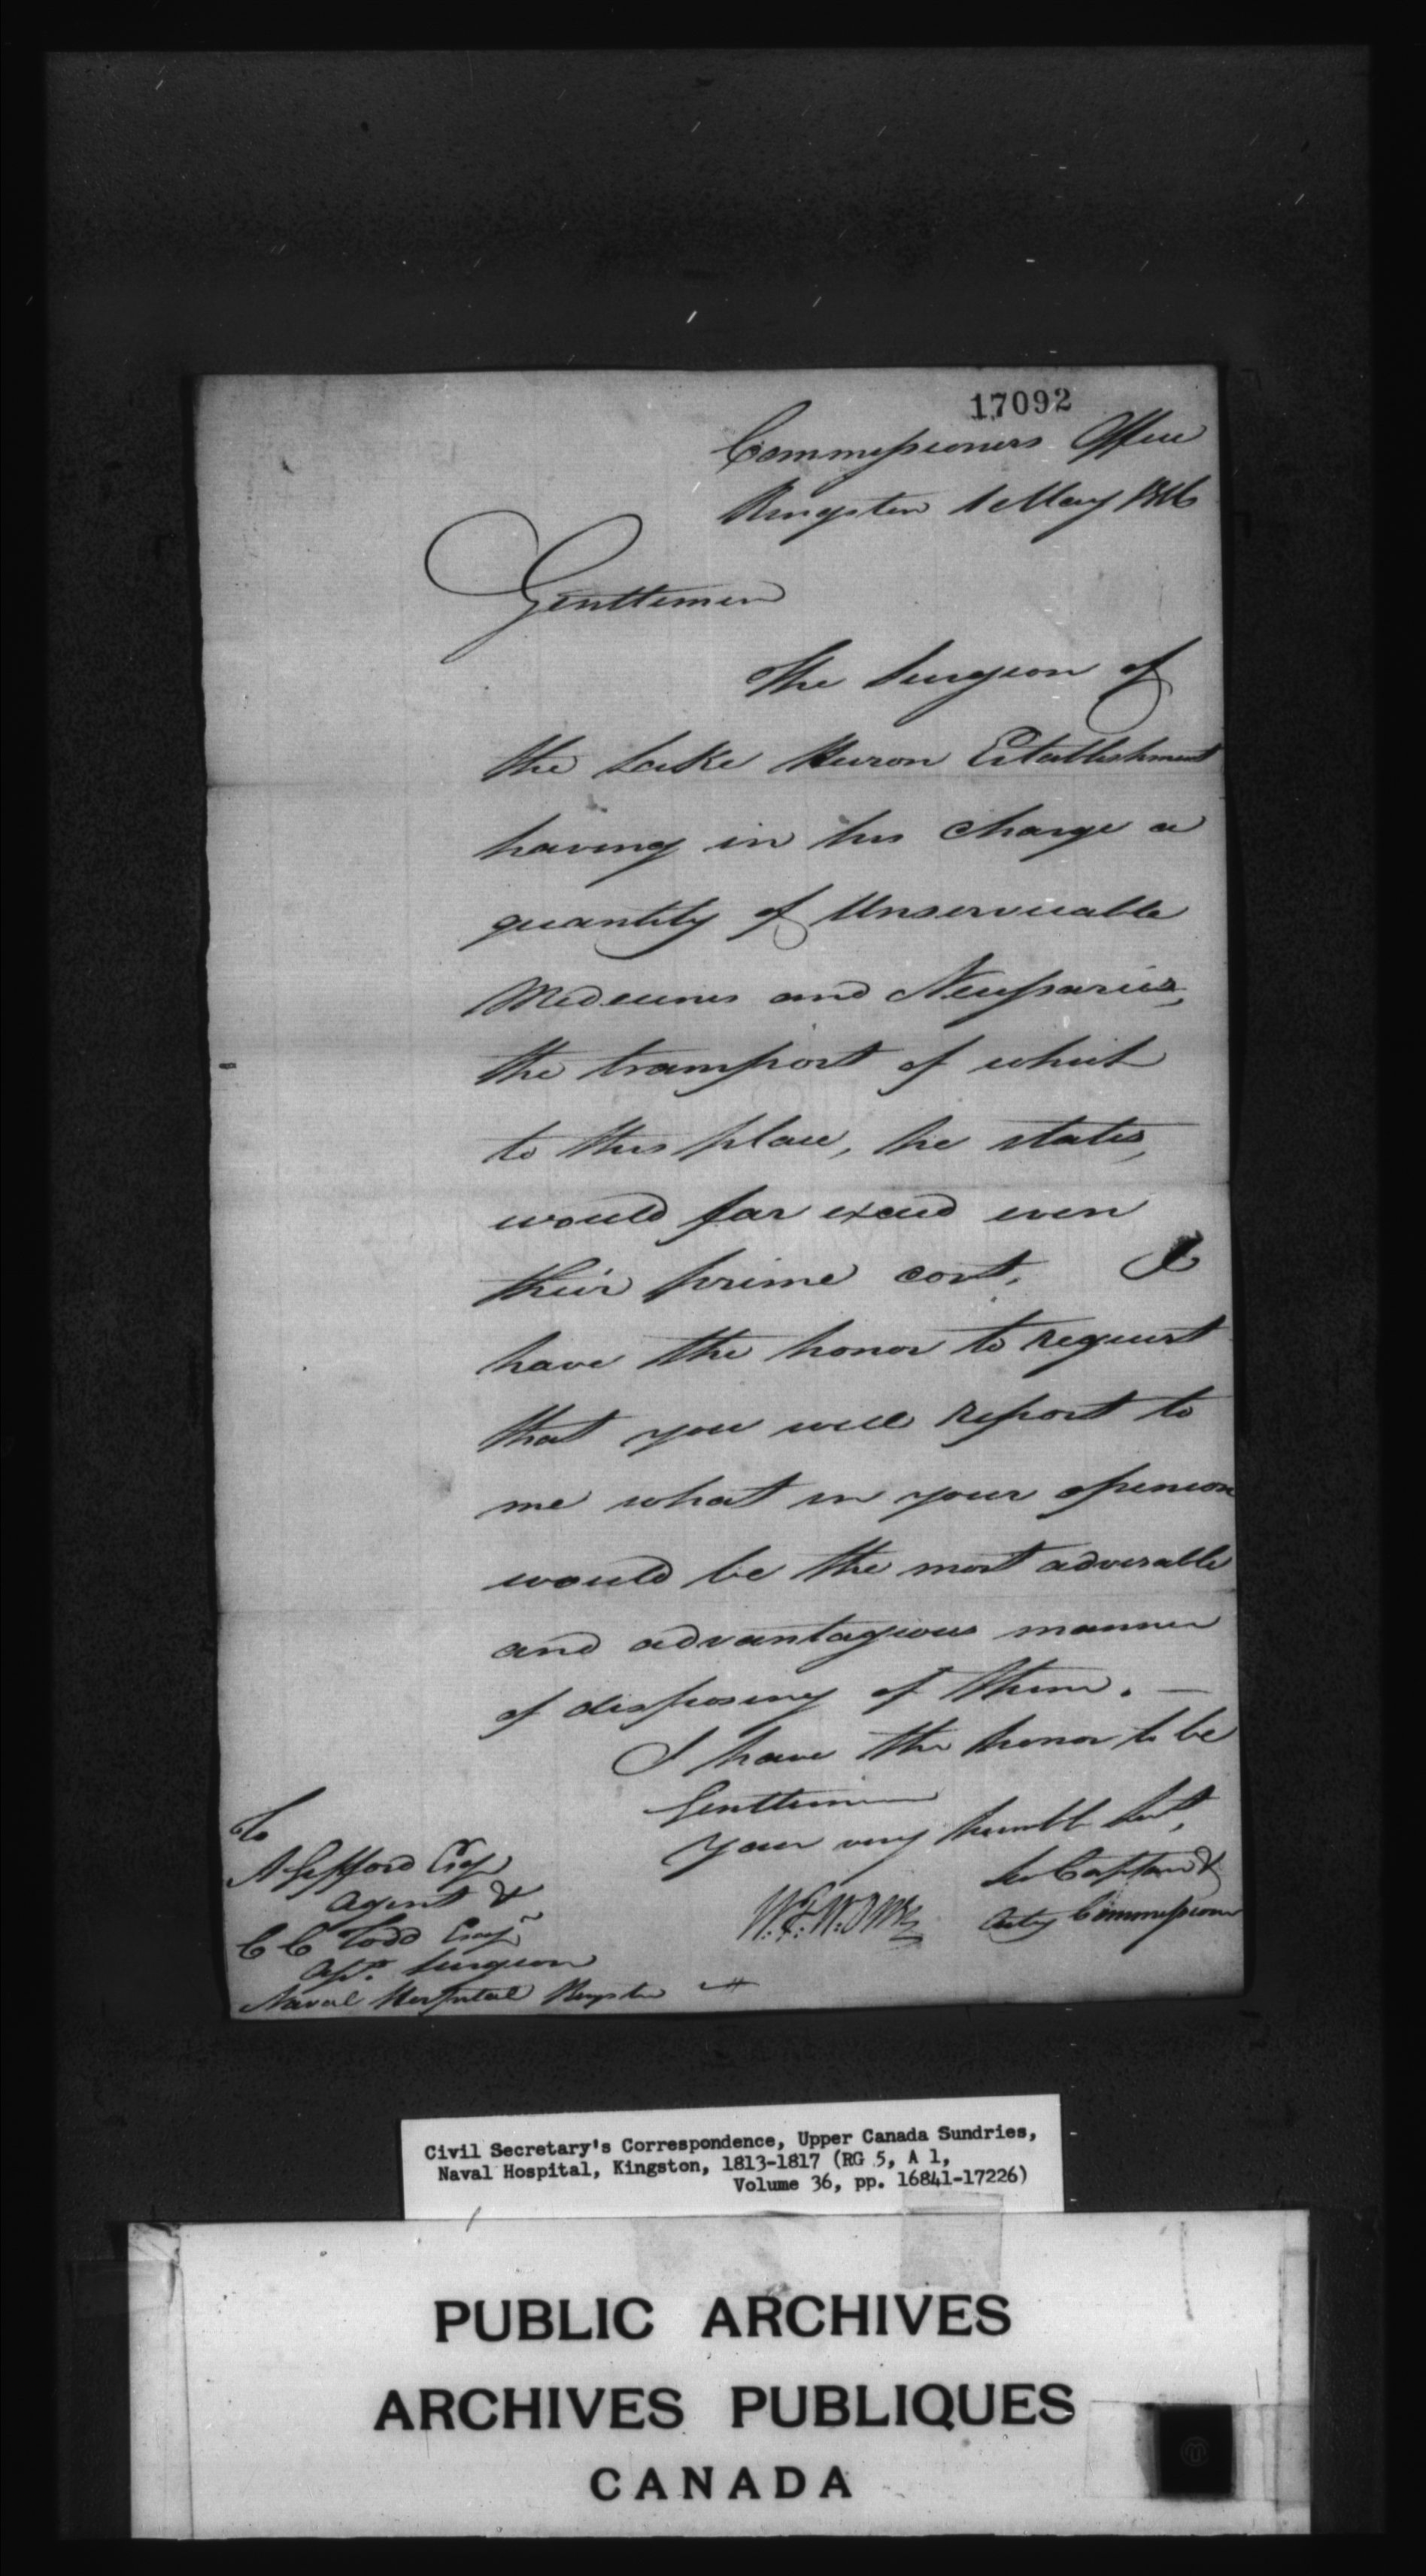 17092
Commissioners Office
Kingston 1 May 1816
Gentlemen
The Surgeon of
the Lake Huron Establishment
having in his charge a
quantity of Unserviceable
Medicines and Necessaries,
the transport of which
to this place, he states,
would far exceed even
their prime cost. I
have the honor to request
that you will report to
me what in your opinion
would be the most adviseable
and advantagious manner
of disposing of them. —
I have the honor to be
Gentlemen
Your very humble Sert,
Captain &
Actg Commissioner
W.F.W. Owen
To
A Gifford Esqr
Agent &
C C Todd Esqr
Asst. Surgeon
Naval Hospital Kingston
Civil Secretary's Correspondence, Upper Canada Sundries,
Naval Hospital, Kingston, 1813-1817 (RG 5, A 1,
Volume 36, pp. 16841-17226)
PUBLIC ARCHIVES
ARCHIVES PUBLIQUES
CANADA